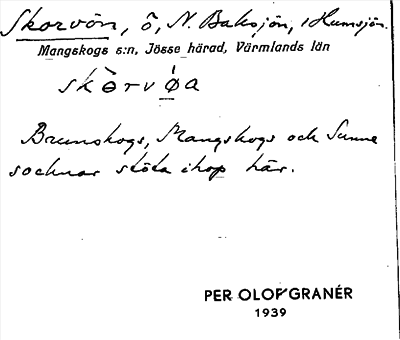 Skorvön, ö, N. Baksjön, i Humsjön.
Mangskogs s:n, Jösse härad, Värmlands län
skòrvǿa
Brunskogs, Mangskogs och Sunne
socknar stöta ihop här.
PER OLOF GRANÉR
1939